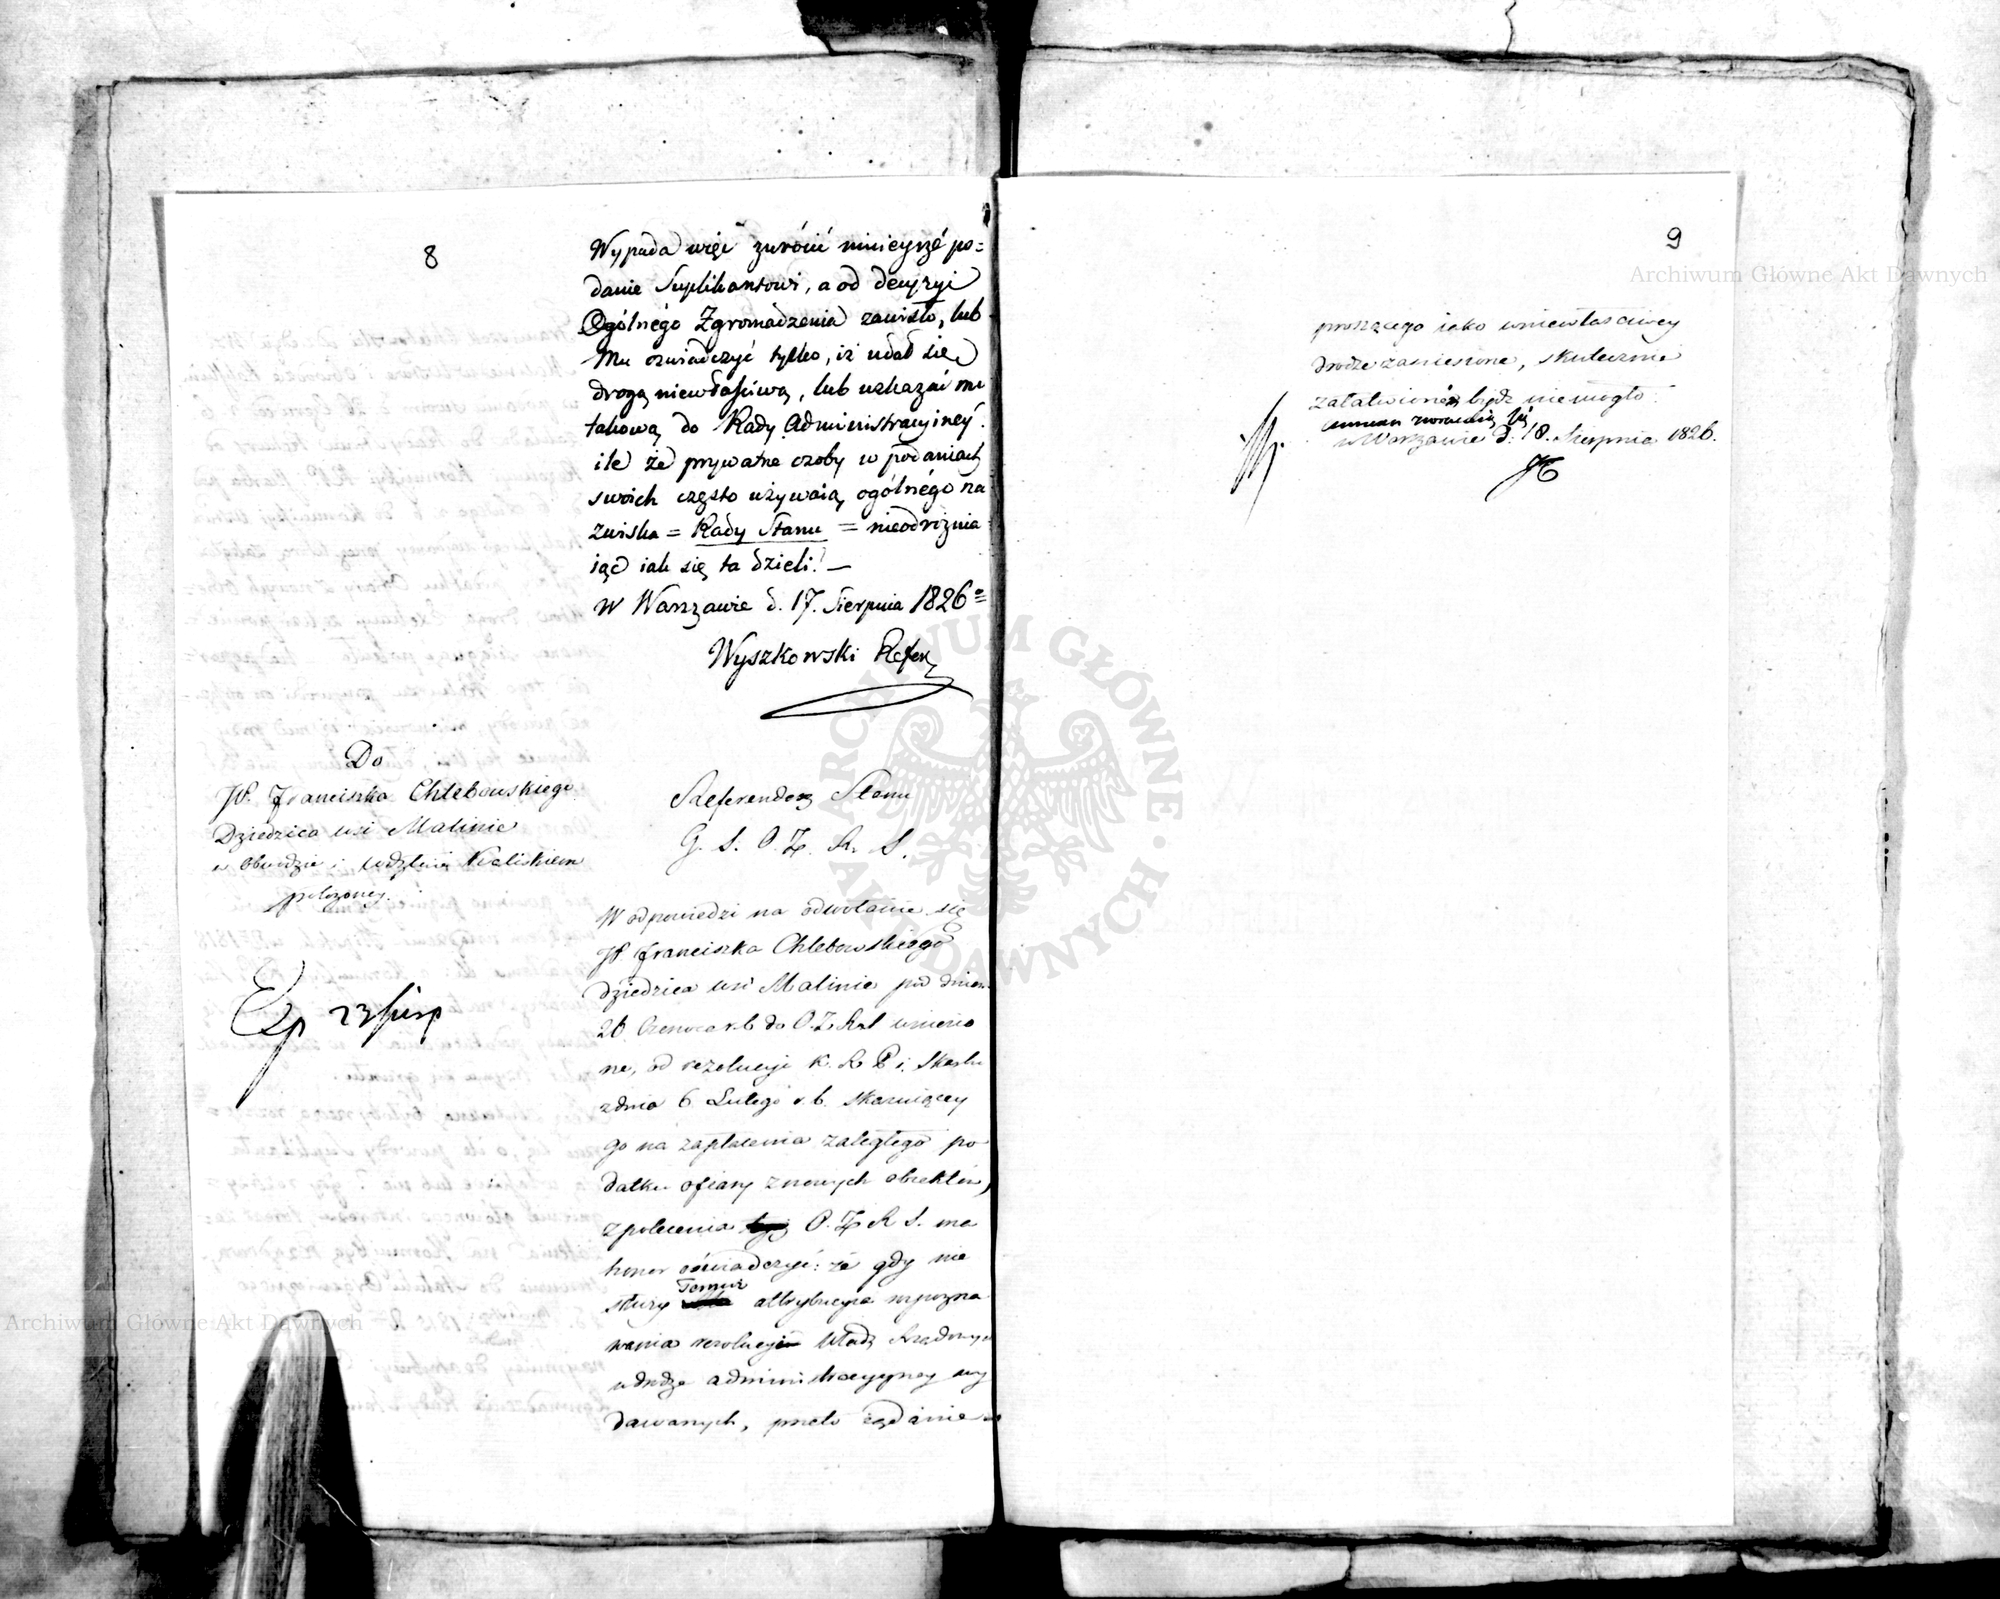 8
Wypada więc zwrócić ninieyszé po=
danie Suplikantowi, a od decyzyi
Ogólnégo Zgromadzenia zawisło, lub
Mu oświadczyć tylko, iż udał się
drogą niewłaściwą, lub wskazać mu
takową do Rady Administracyinéy.
ile że prywatne osoby w podaniach
swoich często używaią ogólnégo na
zwiska = Rady Stanu = nieodróżnia
iąc iak się ta dzieli. —
W Warszawie d. 17. Sierpnia 1826
Wyszkowski Refer
Do
W. Franciszka Chlebowskiego
Dziedzica wsi Malinie
w Obwodzie i Wdztwie Kaliskiem
położoney.
Exp 23 Sierp
Referendarz Stanu
G. S. O. Z. R. S.
W odpowiedzi na odwołanie się
W. Franciszka Chlebowskiego
Dziedzica wsi Malinie pod dniem
26 Czerwca r. b. do O. Z. R. S. wniesio
ne, od rezolucyi K. R. P. i Skarbu
z dnia 6 Lutego r. b. skazuiącey
go na zapłacenia zaległego po
datku ofiary z nowych obiektów,
z polecenia O. Z. R. S. ma
honor oświadczyć: że gdy nie
służy Temuż attrybucya rozpozna
wania rezolucyi Władz Rządowych
w drodze administracyiney wy
dawanych, przeto żądanie
9
Archiwum Główne Akt Dawnych
proszącego iako w niewłaściwey
drodze zaniesione, skutecznie
załatwione bydź niemogło.
zwracaią się
w Warszawie d. 18. Sierpnia 1826.
Archiwum Główne Akt Dawnych
ARCHIWUM GŁÓWNE · AKT DAWNYCH ·